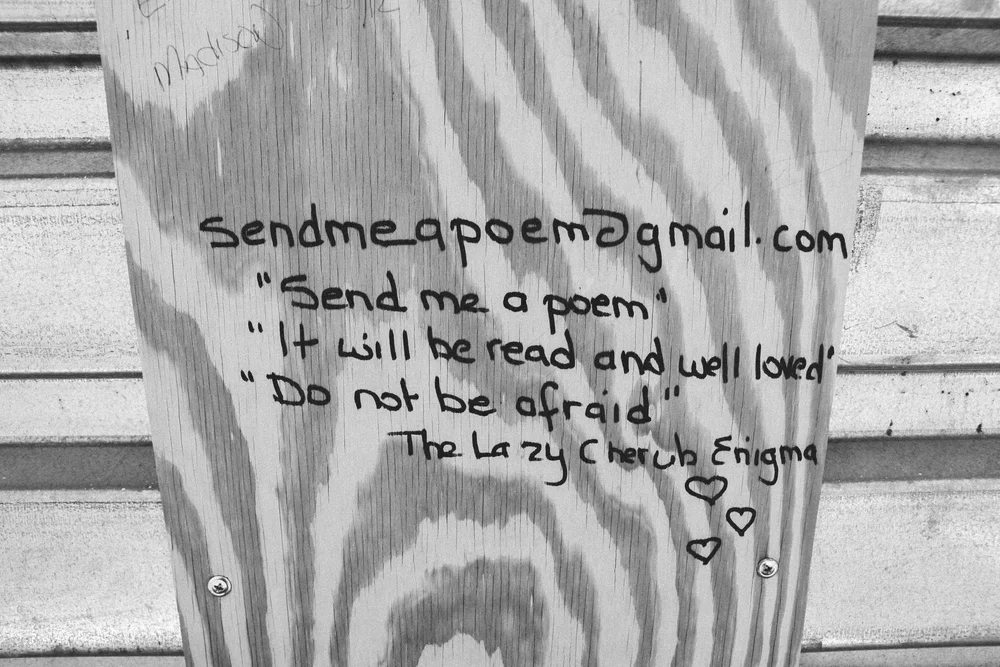 Madison
sendmeapoem@gmail.com
"Send me a poem"
"It will be read and well loved"
"Do not be afraid"
The Lazy Cherub Enigma